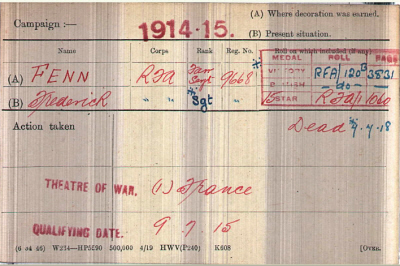 Campaign :— 1914-15. (A) Where decoration was earned.
(B) Present situation.
Name Corps Rank Reg. No. Roll on which included (if any)
MEDAL ROLL PAGE
(A) FENN RFA Farr Sergt 9668 VICTORY RFA/120B 3531
(B) Frederick " " * Sgt BRITISH -do-
15 STAR RFA/1 1060
Action taken Dead 7.7.18
THEATRE OF WAR. (1) France
QUALIFYING DATE. 9.7.15
(6 34 46) W234—HP5590 500,000 4/19 HWV(P240) K608 [OVER.